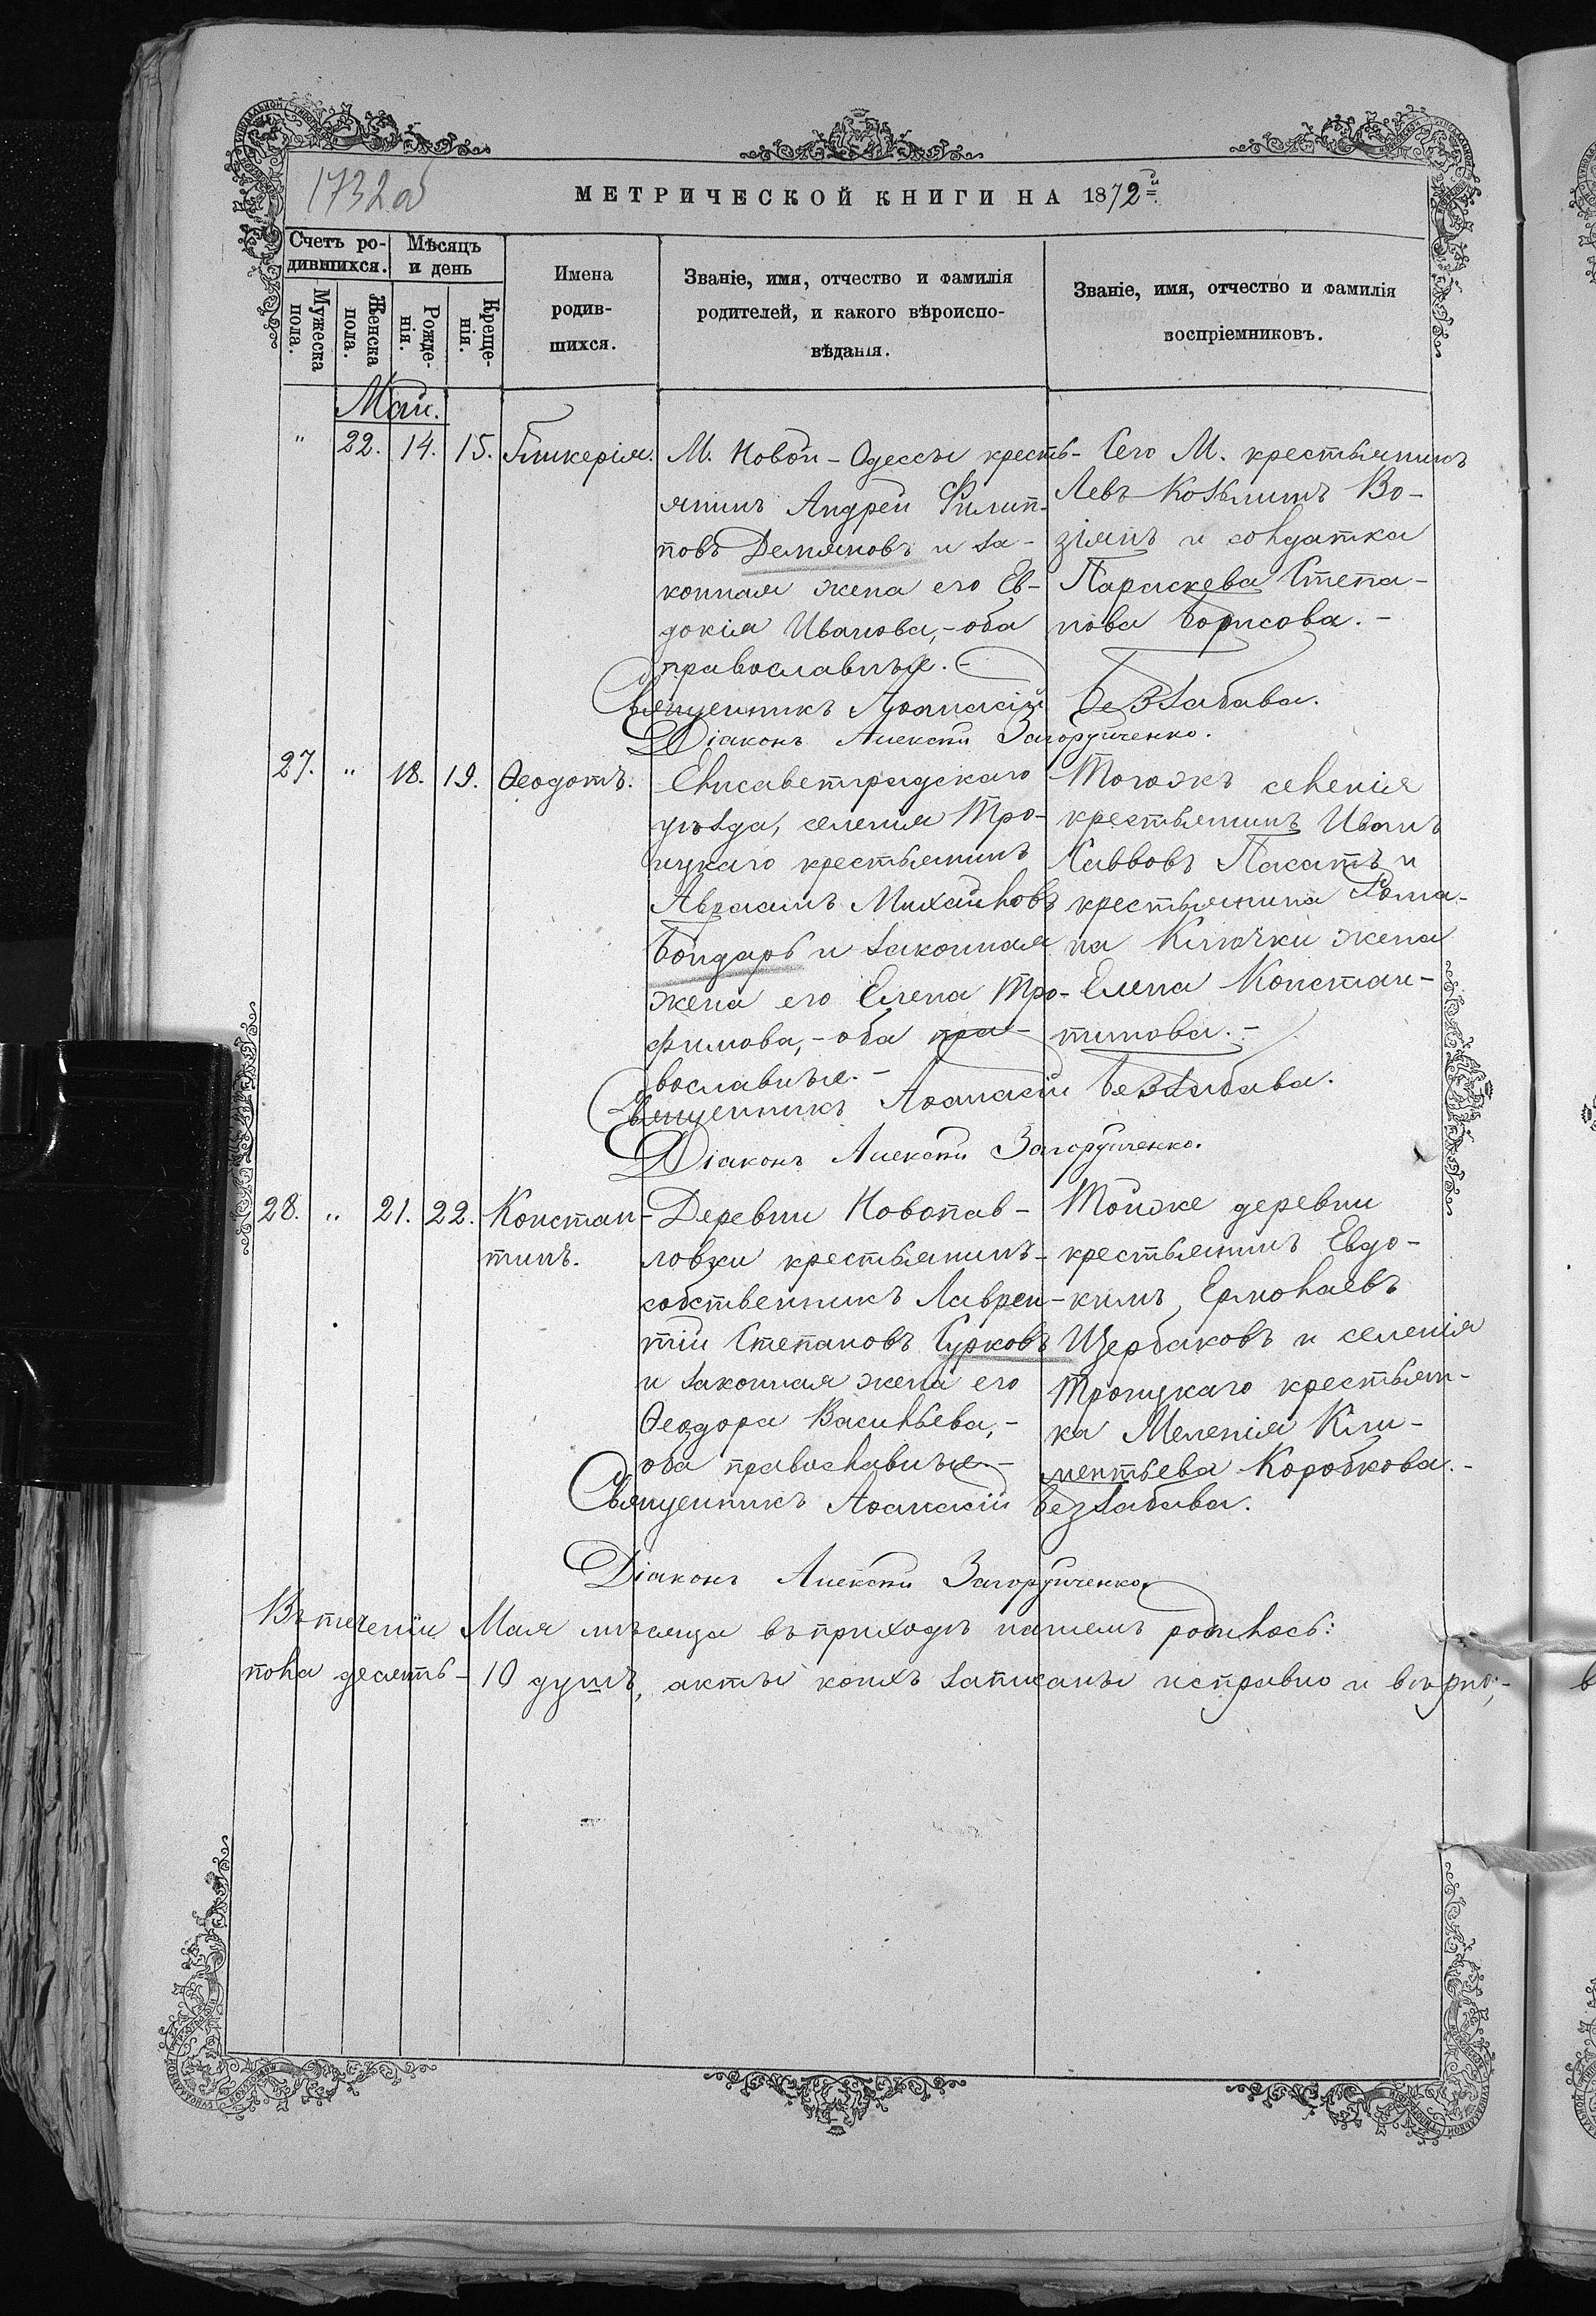 1732об
МЕТРИЧЕСКОЙ КНИГИ НА 1872й
Счетъ ро-
дившихся.
Мѣсяцъ
и день
Мужеска
пола.
Женска
пола.
Рожде-
нія.
Креще-
нія.
Имена
родив-
шихся.
Званіе, имя, отчество и фамилія
родителей, и какого вѣроиспо-
вѣданія.
Званіе, имя, отчество и фамилія
воспріемниковъ.
Май.
" 22. 14. 15. Гликерія.
М. Новой-Одессы кресть-
янинъ Андрей Филип-
повъ Демяновъ и за-
конная жена его Ев-
докія Иванова,- оба
православные.-
Сего М. крестьянинъ
Левъ Козьминъ Во-
зіянъ и солдатка
Параскева Степа-
нова Борисова.-
Священникъ Аѳанасій Беззабава.
Діаконъ Алексѣй Загоруйченко.
27. " 18. 19. Ѳеодотъ.
Елисаветградскаго
уѣзда, селенія Тро-
ицкаго крестьянинъ
Авраамъ Михайловъ
Бондарь и законная
жена его Елена Тро-
фимова,- оба пра-
вославные.-
Тогожъ селенія
крестьянинъ Иванъ
Саввовъ Пасатъ и
крестьянина Рома-
на Клочки жена
Елена Констан-
тинова.-
Священникъ Аѳанасій Беззабава.
Діаконъ Алексѣй Загоруйченко.
28. " 21. 22. Констан-
тинъ.
Деревни Новопав-
ловки крестьянинъ-
собственникъ Лаврен-
тій Степановъ Сурковъ
и законная жена его
Ѳеодора Васильева,-
оба православные.-
Тойже деревни
крестьянинъ Евдо-
кимъ Ермолаевъ
Щербаковъ и селенія
Троицкаго крестьян-
ка Меленія Кли-
ментьева Коробкова.-
Священникъ Аѳанасій Беззабава.
Діаконъ Алексѣй Загоруйченко.
Въ теченіи Мая мѣсяца въ приходѣ нашемъ родилось:
пола десять - 10 душъ, акты коихъ записаны исправно и вѣрно,-